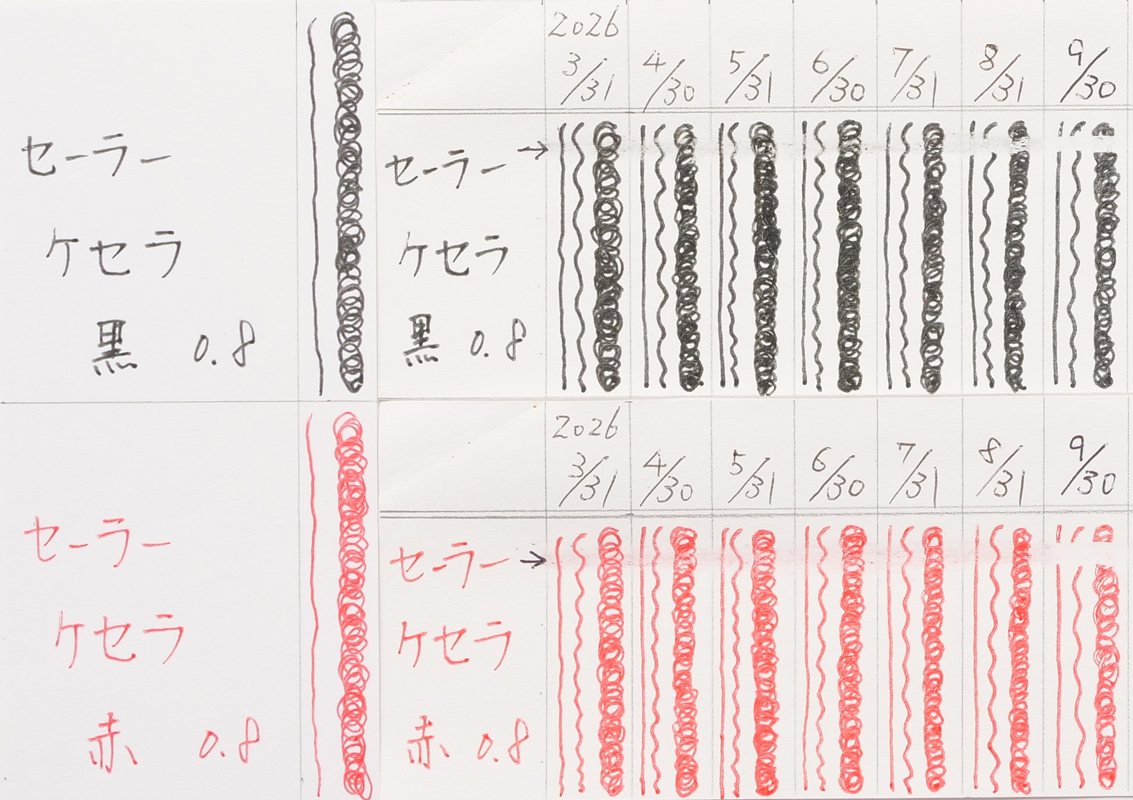 セーラー
ケセラ
黒 0.8
2026
3/31 4/30 5/31 6/30 7/31 8/31 9/30
→
セーラー
ケセラ
黒 0.8
セーラー
ケセラ
赤 0.8
2026
3/31 4/30 5/31 6/30 7/31 8/31 9/30
→
セーラー
ケセラ
赤 0.8